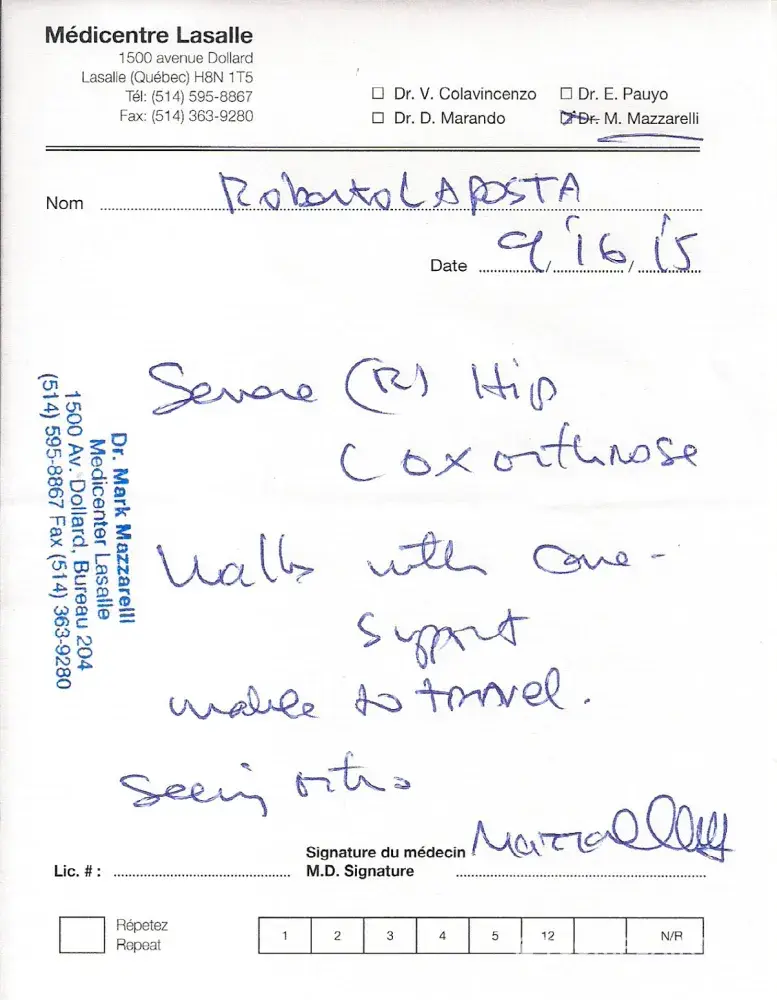 Médicentre Lasalle
1500 avenue Dollard
Lasalle (Québec) H8N 1T5
Tél: (514) 595-8867
Fax: (514) 363-9280
☐ Dr. V. Colavincenzo ☐ Dr. E. Pauyo
☐ Dr. D. Marando ☑ Dr. M. Mazzarelli
Nom Roberto LAPOSTA
Date 9/16/15
Severe (R) Hip
Coxorthrose
Walks with cane -
support
unable to travel.
Seeing ortho
Dr. Mark Mazzarelli
Medicenter Lasalle
1500 Av. Dollard, Bureau 204
(514) 595-8867 Fax (514) 363-9280
Signature du médecin
Lic. # : M.D. Signature
Répetez
Repeat
1 2 3 4 5 12 N/R